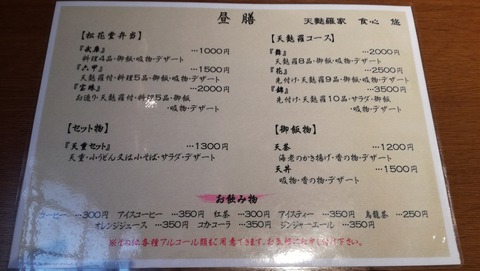 昼膳
天麩羅家 食心 悠
【松花堂弁当】
『武庫』 …1000円
料理4品・御飯・吸物・デザート
『六甲』 …1500円
天麩羅付・料理5品・御飯
・吸物・デザート
『宝珠』 …2000円
お造り・天麩羅付・料理5品・御飯
・吸物・デザート
【セット物】
『天重セット』 …1300円
天重・小うどん又は小そば・サラダ・デザート
【天麩羅コース】
…2000円
天麩羅8品・御飯・吸物・デザート
『花』 …2500円
先付・天麩羅9品・御飯・吸物・デザート
『錦』 …3500円
先付・天麩羅10品・サラダ・御飯
・吸物・デザート
【御飯物】
天茶 …1200円
海老のかき揚げ・香の物・デザート
天丼 …1500円
吸物・香の物・デザート
お飲み物
コーヒー …300円 アイスコーヒー …350円 紅茶 …300円 アイスティー …350円 烏龍茶 …250円
オレンジジュース …350円 コカコーラ …350円 ジンジャーエール …350円
※その他各種アルコール類もご用意できます。お気軽にお申し付け下さい。